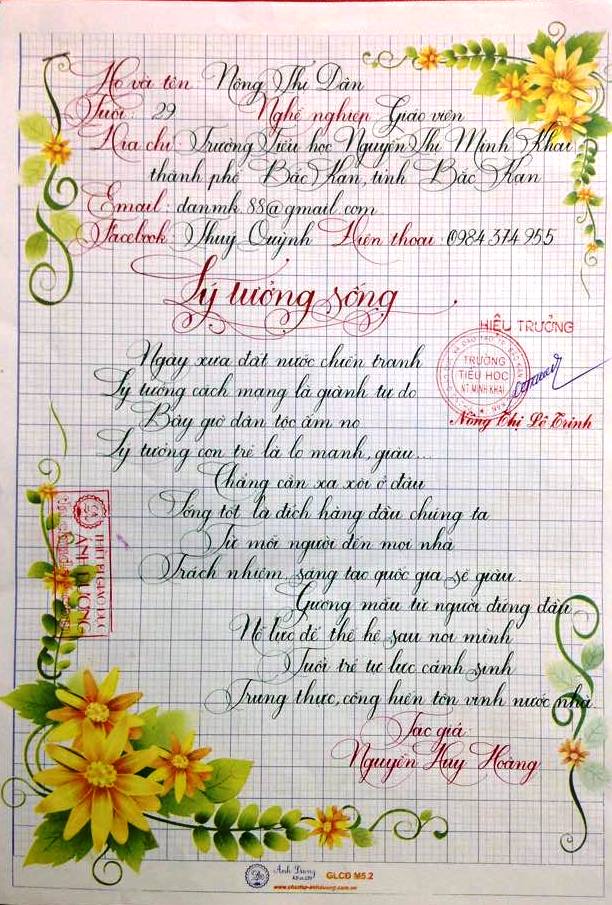 Họ và tên: Nông Thị Dân
Tuổi: 29 Nghề nghiệp: Giáo viên
Địa chỉ: Trường Tiểu học Nguyễn Thị Minh Khai
thành phố Bắc Kạn, tỉnh Bắc Kạn
Email: danmk.88@gmail.com
Facebook: Thuý Quỳnh Điện thoại: 0984 374 955
Lý tưởng sống
HIỆU TRƯỞNG
TRƯỜNG
TIỂU HỌC
NT MINH KHAI
Nông Thị Lệ Trinh
Ngày xưa đất nước chiến tranh
Lý tưởng cách mạng là giành tự do
Bây giờ dân tộc ấm no
Lý tưởng con trẻ là lo mạnh, giàu...
Chẳng cần xa xôi ở đâu
Sống tốt là đích hàng đầu chúng ta
Từ mỗi người đến mọi nhà
Trách nhiệm, sáng tạo quốc gia sẽ giàu.
Gương mẫu từ người đứng đầu
Nỗ lực để thế hệ sau noi mình
Tuổi trẻ tự lực cánh sinh
Trung thực, cống hiến tôn vinh nước nhà
Tác giả:
Nguyễn Huy Hoàng
THIẾT BỊ GIÁO DỤC
ÁNH DƯƠNG
Ánh Dương
GLCĐ M5.2